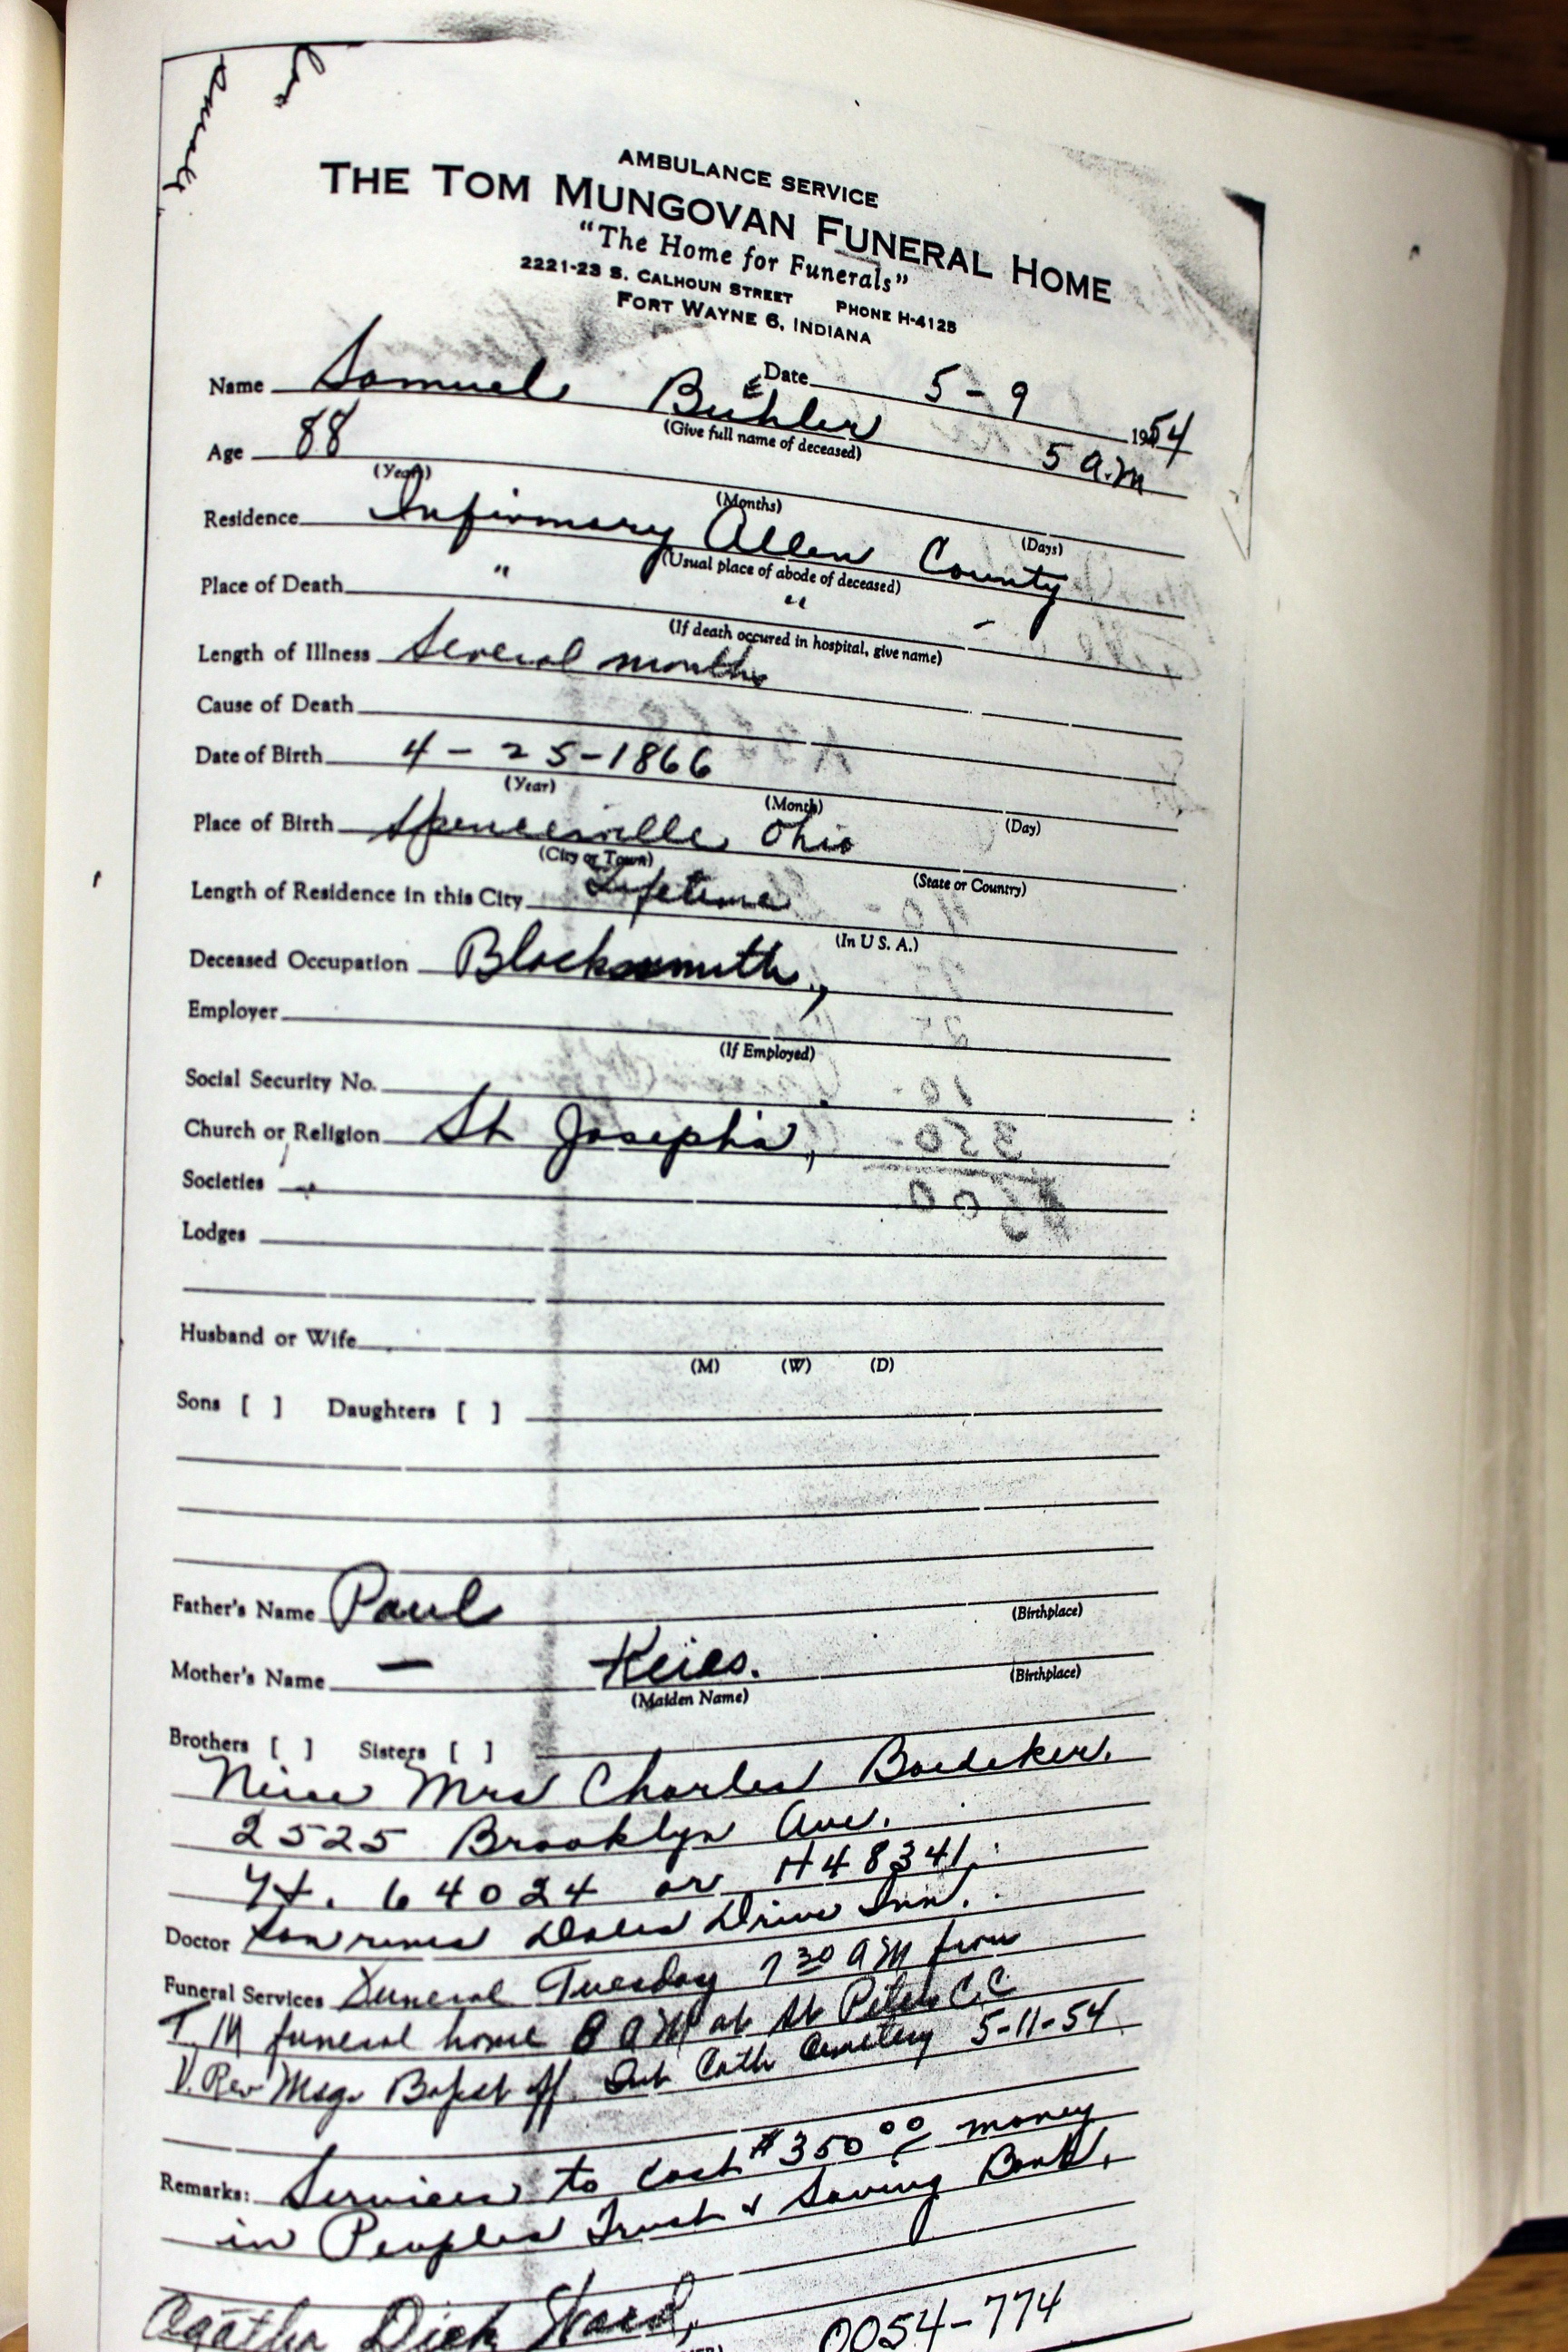 AMBULANCE SERVICE
THE TOM MUNGOVAN FUNERAL HOME
"The Home for Funerals"
2221-23 S. CALHOUN STREET PHONE H-4125
FORT WAYNE 6, INDIANA
Date 5-9 1954
Name Samuel Buhler 5 a.m
(Give full name of deceased)
Age 88
(Years) (Months) (Days)
Residence Infirmary Allen County
(Usual place of abode of deceased)
Place of Death " " -
(If death occured in hospital, give name)
Length of Illness Several months
Cause of Death
Date of Birth 4-25-1866
(Year) (Month) (Day)
Place of Birth Spencerville, Ohio
(City or Town) (State or Country)
Length of Residence in this City Lifetime
(In U S. A.)
Deceased Occupation Blacksmith,
Employer
(If Employed)
Social Security No.
Church or Religion St Joseph's,
Societies
Lodges
Husband or Wife
(M) (W) (D)
Sons [ ] Daughters [ ]
Father's Name Paul
(Birthplace)
Mother's Name — Keies.
(Maiden Name) (Birthplace)
Brothers [ ] Sisters [ ]
Niece Mrs Charles Boedeker.
2525 Brooklyn Ave.
64024 or H48341.
Doctor Dales Drive Inn.
Funeral Services Funeral Tuesday 7 30 AM from
T.M funeral home 8 AM at St Peters C.C
V. Rev Msgr Bapst off. Int Cath Cemetery 5-11-54
Remarks: Services to cost $350 00 money
in Peoples Trust & Saving Bank.
Agatha Dick Ward,
0054-774